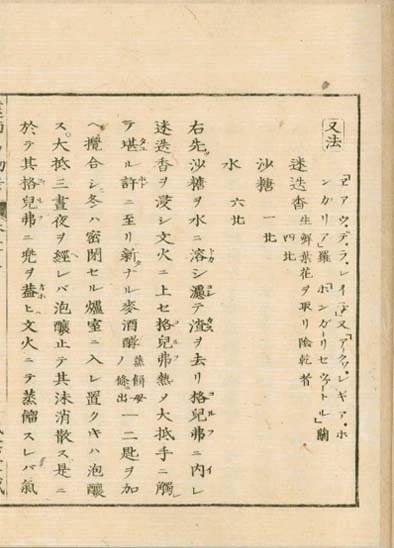 又法
「ヱアウ、デ、ラ、レイ子」又「アクワ、レギア、ホ
ンガリア」羅「ホンガーリセ、ワァトル」蘭
迷迭香 生鮮葉花ヲ取リ陰乾者 四比
沙糖 一比
水 六比
右先ッ沙糖ヲ水ニ溶シ濃テ渣ヲ去リ格兒弗ニ内レ
迷迭香ヲ浸シ文火ニ上セ格兒弗熱メ大抵手ニ觸
テ堪ル許ニ至リ新タナル麥酒酵 蒸餅母ノ條出 一二匙ヲ加
ヘ攪合シ冬ハ密閉セル爐室ニ入レ置クキハ泡釀
ス大抵三晝夜ヲ經レバ泡釀止テ其沫消散ス是ニ
於テ其格兒弗ニ兜ヲ蓋ヒ文火ニテ蒸餾スレバ氣